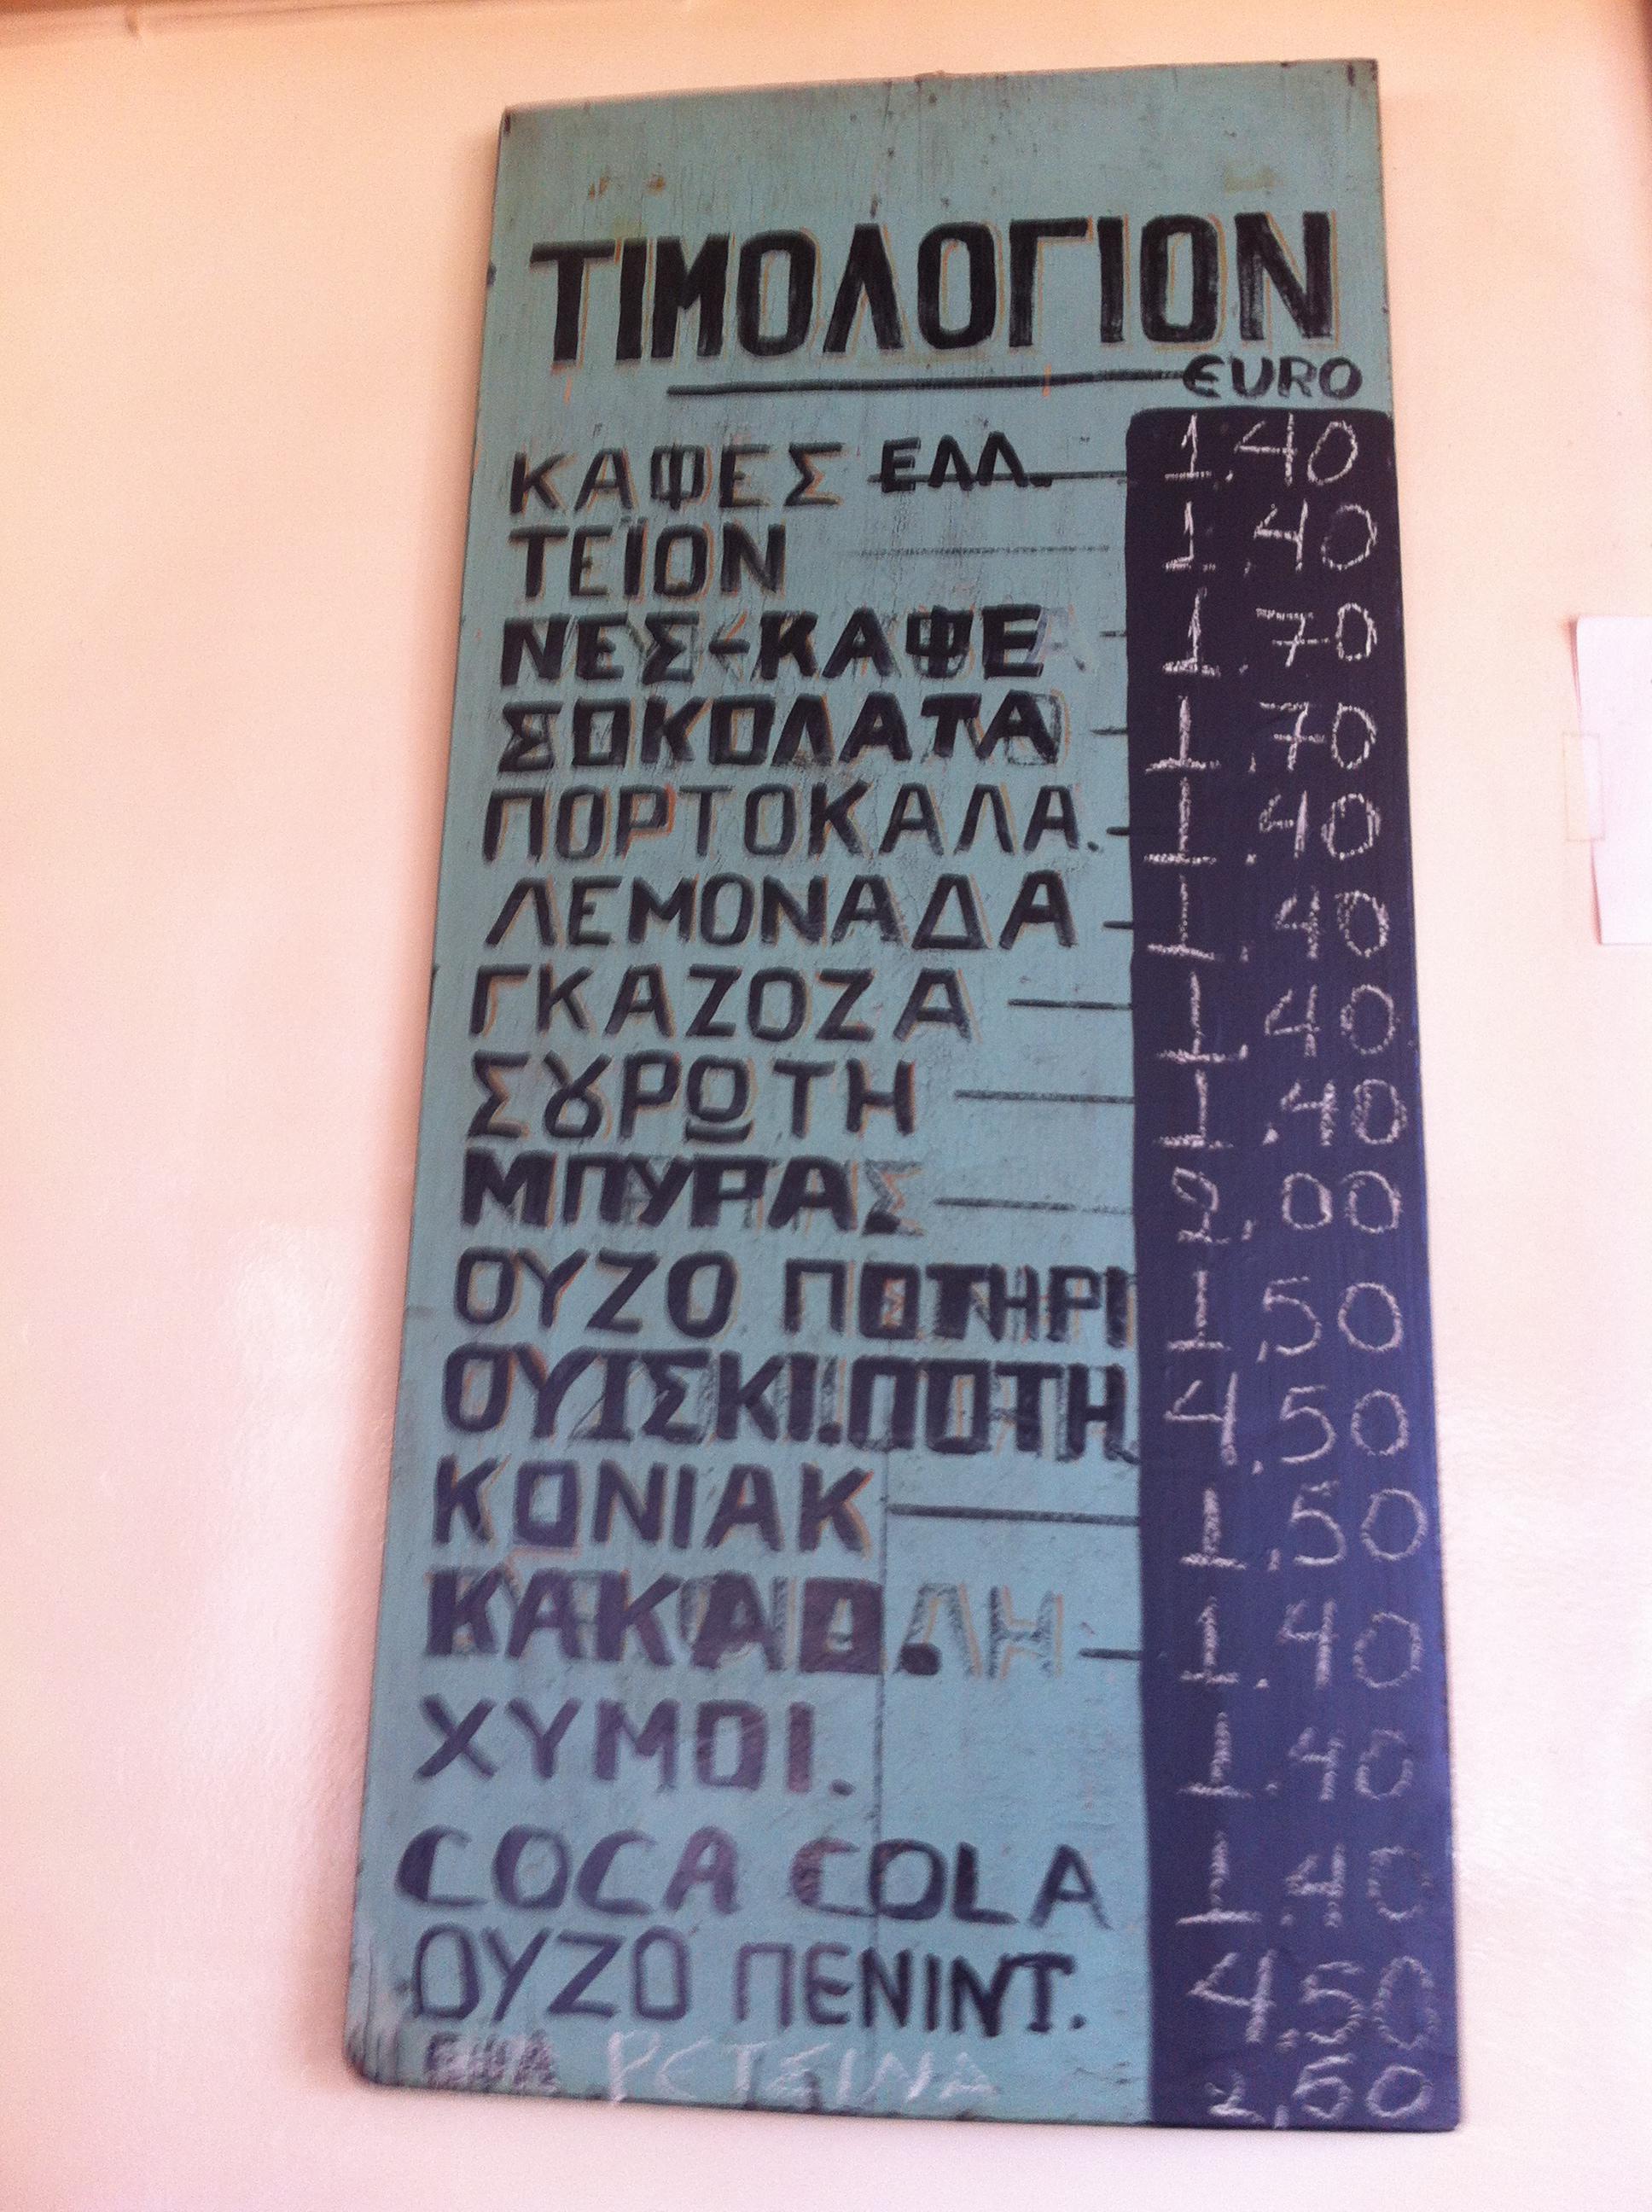 ΤΙΜΟΛΟΓΙΟΝ
EURO
ΚΑΦΕΣ ΕΛΛ. 1.40
ΤΕΪΟΝ 1.40
ΝΕΣ-ΚΑΦΕ 1.70
ΣΟΚΟΛΑΤΑ 1.70
ΠΟΡΤΟΚΑΛΑ. 1.40
ΛΕΜΟΝΑΔΑ 1.40
ΓΚΑΖΟΖΑ 1.40
ΣΥΡΩΤΗ 1.40
ΜΠΥΡΑ 2.00
ΟΥΖΟ ΠΟΤΗΡΙ 1,50
ΟΥΙΣΚΙ.ΠΟΤΗ 4,50
ΚΟΝΙΑΚ 1,50
ΚΑΚΑΟ. 1.40
ΧΥΜΟΙ. 1.40
COCA COLA 1.40
ΟΥΖΟ ΠΕΝΙΝΤ. 4,50
ΡΕΤΣΙΝΑ 2,50